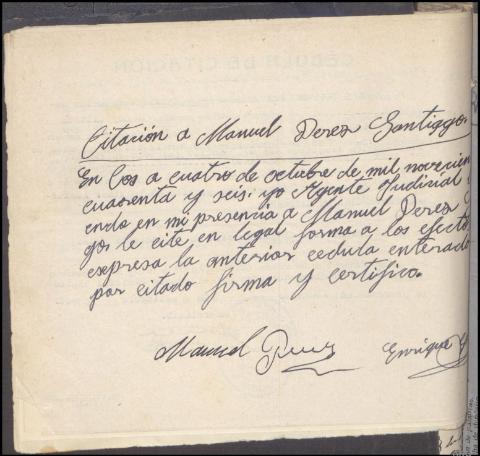 CÉDULA DE CITACIÓN
Citación a Manuel Perez Santiago.
En Cos a cuatro de octubre de mil novecien
cuarenta y seis: yo Agente Judicial
endo en mi presencia a Manuel Perez S
go, le cité en legal forma a los efecto
expresa la anterior cedula enterado
por citado firma y certifico.
Manuel Perez
Enrique